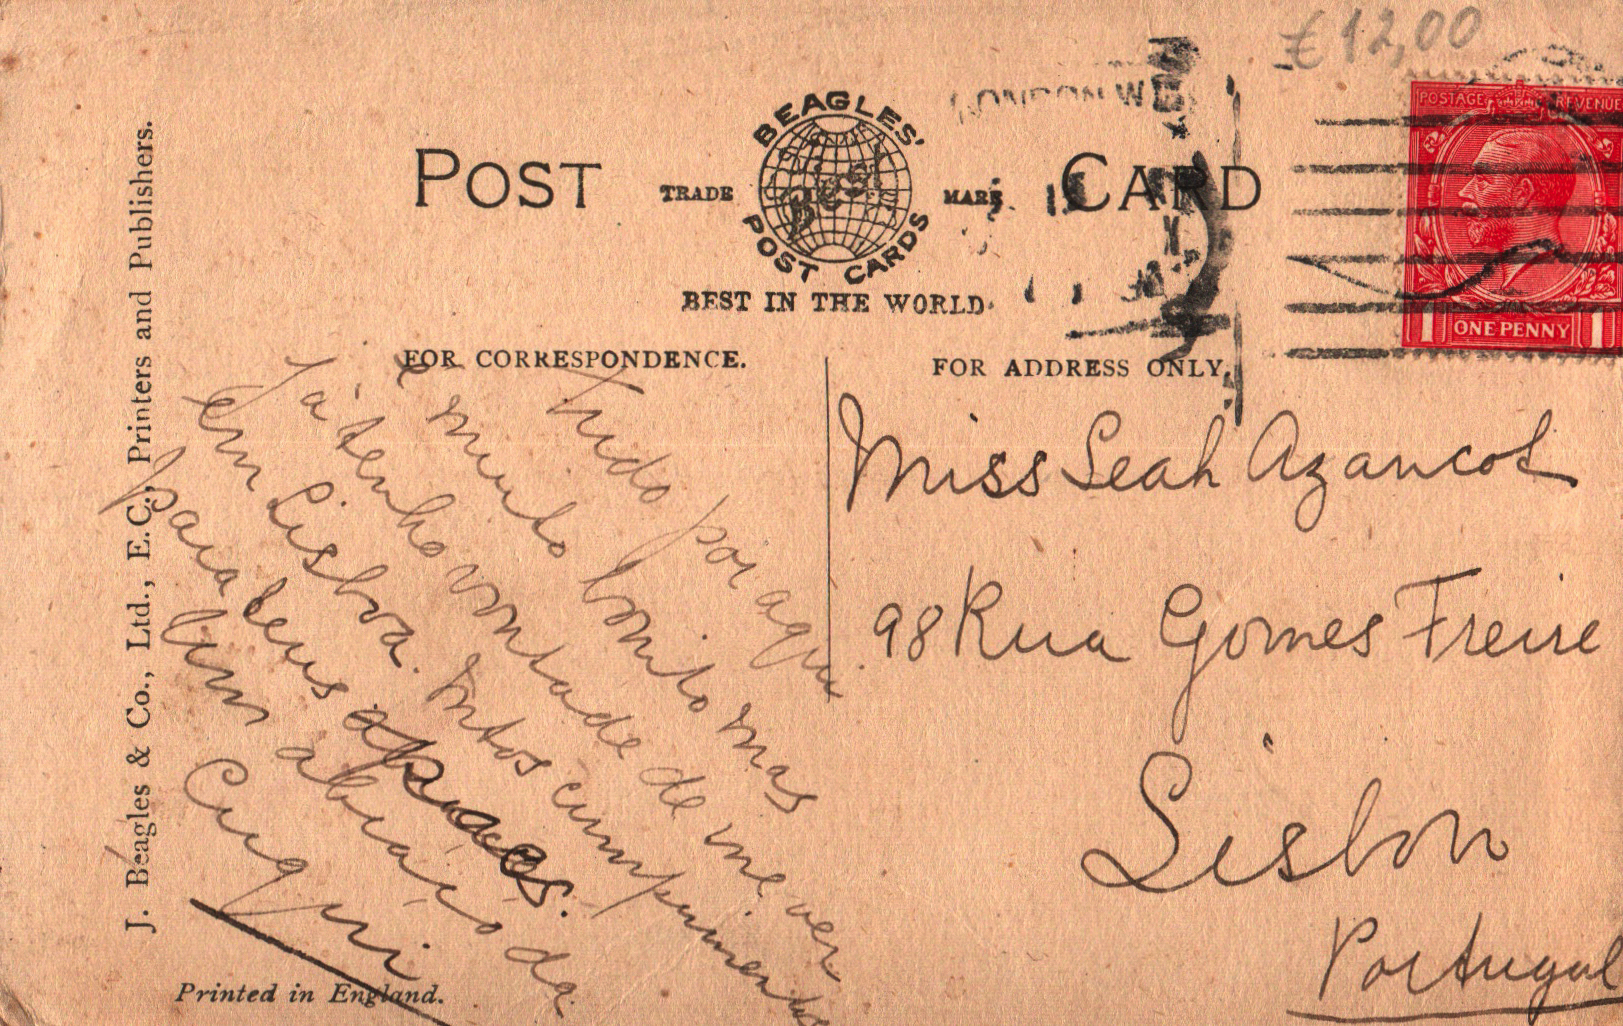 €12,00
LONDON W
POSTAGE REVENUE
1 ONE PENNY 1
POST CARD
BEAGLES'
Best
POST CARDS
TRADE MARK
BEST IN THE WORLD
FOR CORRESPONDENCE.
FOR ADDRESS ONLY.
J. Beagles & Co., Ltd., E.C., Printers and Publishers.
Tudo por aqui
é muito bonito mas
já tenho vontade de me ver
em Lisboa. cumprimentos
para teus
Um abraço da
Cuqui
Miss Leah Azancot
98 Rua Gomes Freire
Lisbon
Portugal
Printed in England.